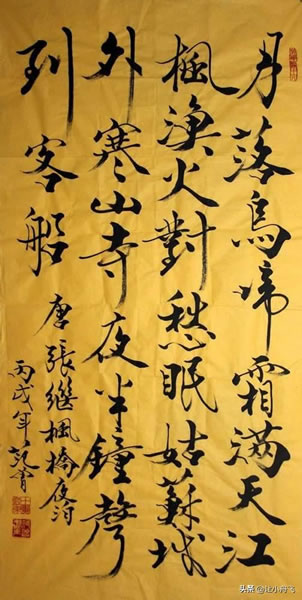 月落烏啼霜滿天江
楓漁火對愁眠姑蘇城
外寒山寺夜半鐘聲
到客船
唐張繼楓橋夜泊
丙戌年
头条